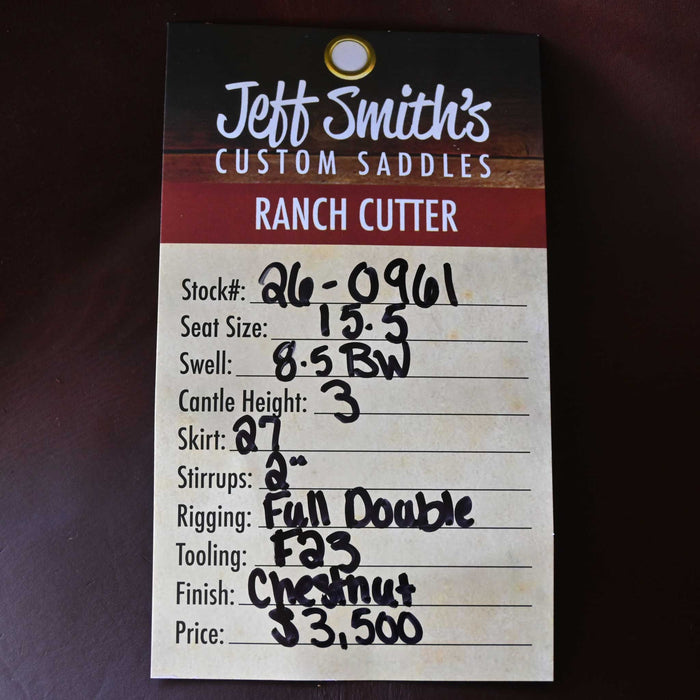 Jeff Smith's
CUSTOM SADDLES
RANCH CUTTER
Stock#: 26-0961
Seat Size: 15.5
Swell: 8.5 BW
Cantle Height: 3
Skirt: 27
Stirrups: 2"
Rigging: Full Double
Tooling: F23
Finish: Chestnut
Price: $3,500